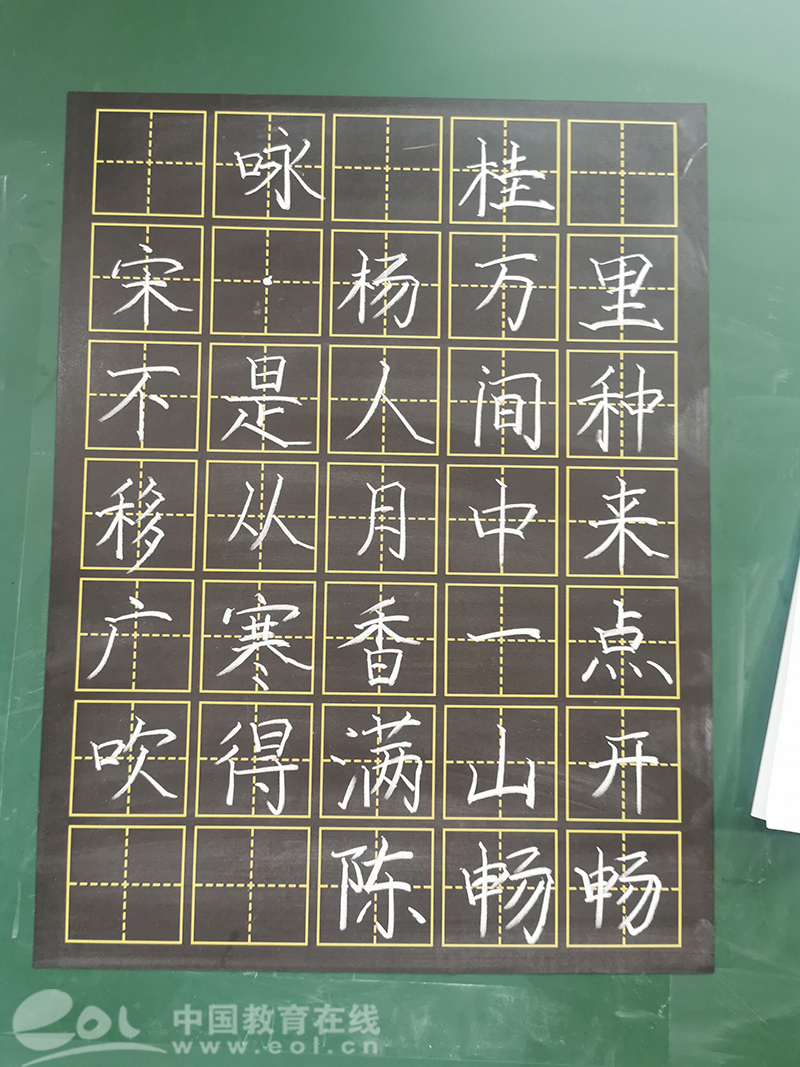 咏 桂
宋·杨万里
不是人间种
移从月中来
广寒香一点
吹得满山开
陈畅畅
eol 中国教育在线
www.eol.cn